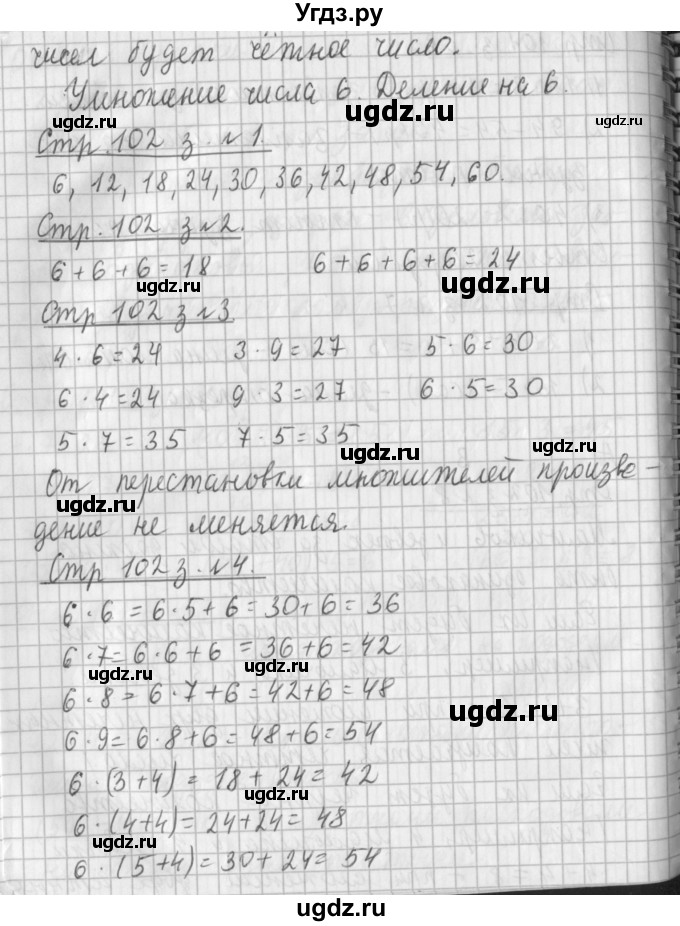 Угдз.ру
чисел будет чётное число.
Умножение числа 6. Деление на 6.
ugdz.ru ugdz.ru
ugdz.ru
Стр. 102 з. №1.
6, 12, 18, 24, 30, 36, 42, 48, 54, 60.
Стр. 102 з №2.
6+6+6=18 6+6+6+6=24
ugdz.ru ugdz.ru
Стр 102 з №3
4·6=24 3·9=27 5·6=30
6·4=24 9·3=27 6·5=30
5·7=35 7·5=35
ugdz.ru ugdz.ru
От перестановки множителей произве-
ugdz.ru
дение не меняется.
Стр 102 з. №4.
ugdz.ru
6·6=6·5+6=30+6=36
6·7=6·6+6=36+6=42
ugdz.ru ugdz.ru
6·8=6·7+6=42+6=48
ugdz.ru
6·9=6·8+6=48+6=54
6·(3+4)=18+24=42
ugdz.ru
6·(4+4)=24+24=48
ugdz.ru
6·(5+4)=30+24=54
ugdz.ru